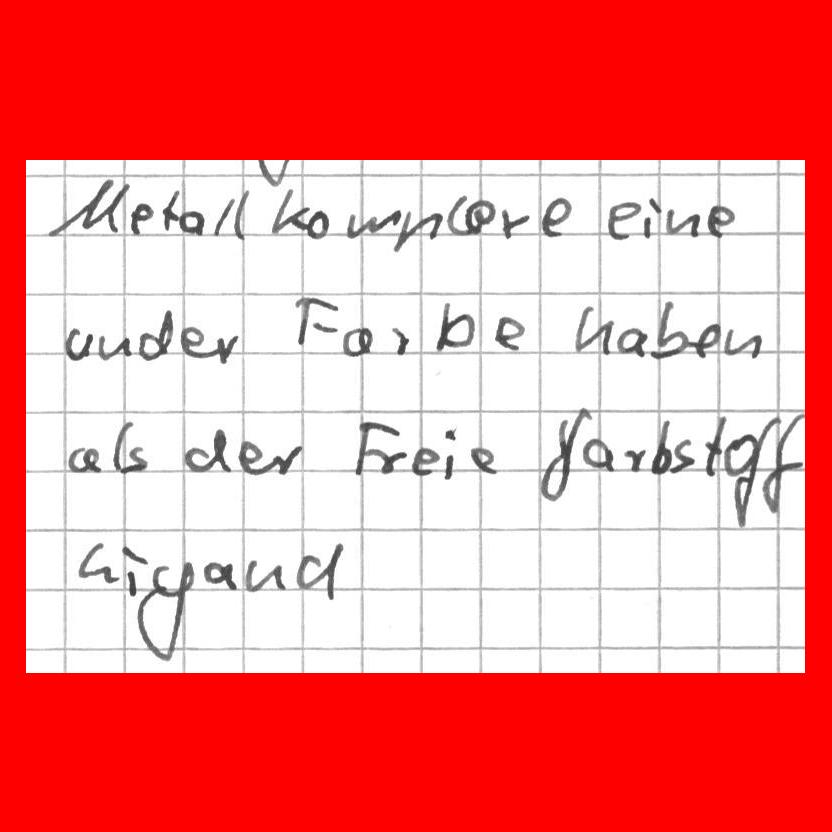 Metallkomplexe eine
ander Farbe haben
als der Freie Farbstoff
Ligand